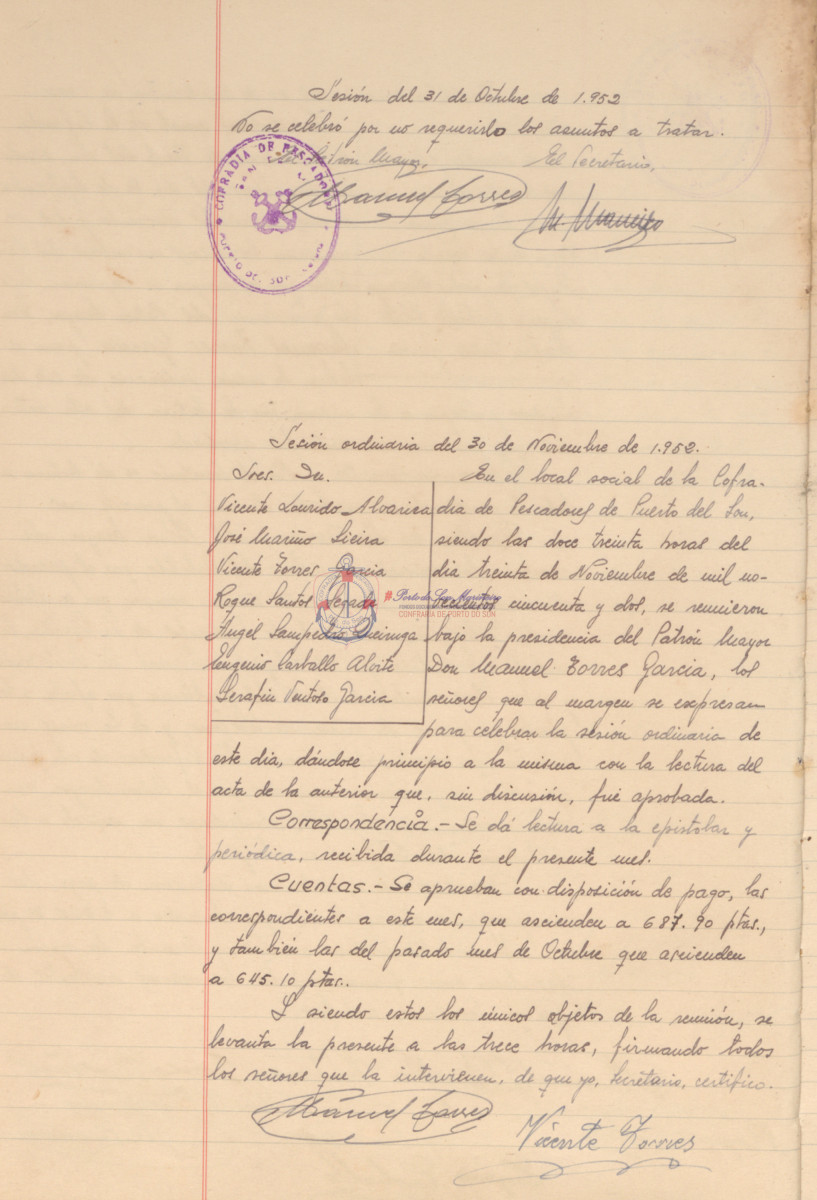 Sesión del 31 de Octubre de 1.952
No se celebró por no requerirlo los asuntos a tratar.
El Patrón Mayor,
El Secretario,
COFRADIA DE PESCADORES
PUERTO DEL SON
Manuel Torres
Sesión ordinaria del 30 de Noviembre de 1.952.
Sres. Dn.
Vicente Lourido
José Mariño Sieira
Vicente Torres Garcia
Roque Santos Segade
Ángel Sampedro Queiruga
Eugenio Carballo Aloite
Serafin Ventoso Garcia
En el local social de la Cofra-
dia de Pescadores de Puerto del Son,
siendo las doce treinta horas del
dia treinta de Noviembre de mil no-
vecientos cincuenta y dos, se reunieron
bajo la presidencia del Patrón Mayor
Don Manuel Torres Garcia, los
señores que al margen se expresan
para celebrar la sesión ordinaria de
este dia, dándose principio a la misma con la lectura del
acta de la anterior que, sin discusión, fué aprobada.
Correspondéncia.- Se dá lectura a la epistolar y
periódica, recibida durante el presente mes.
Cuentas.- Se aprueban con disposición de pago, las
correspondientes a este mes, que ascienden a 687.90 ptas.,
y también las del pasado mes de Octubre que ascienden
a 645.10 ptas..
Y siendo estos los únicos objetos de la reunión, se
levanta la presente a las trece horas, firmando todos
los señores que la intervienen, de que yo, Secretario, certifico.
Manuel Torres
Vicente Torres
Porto do Son Marítimo
CONFRARÍA DE PORTO DO SON